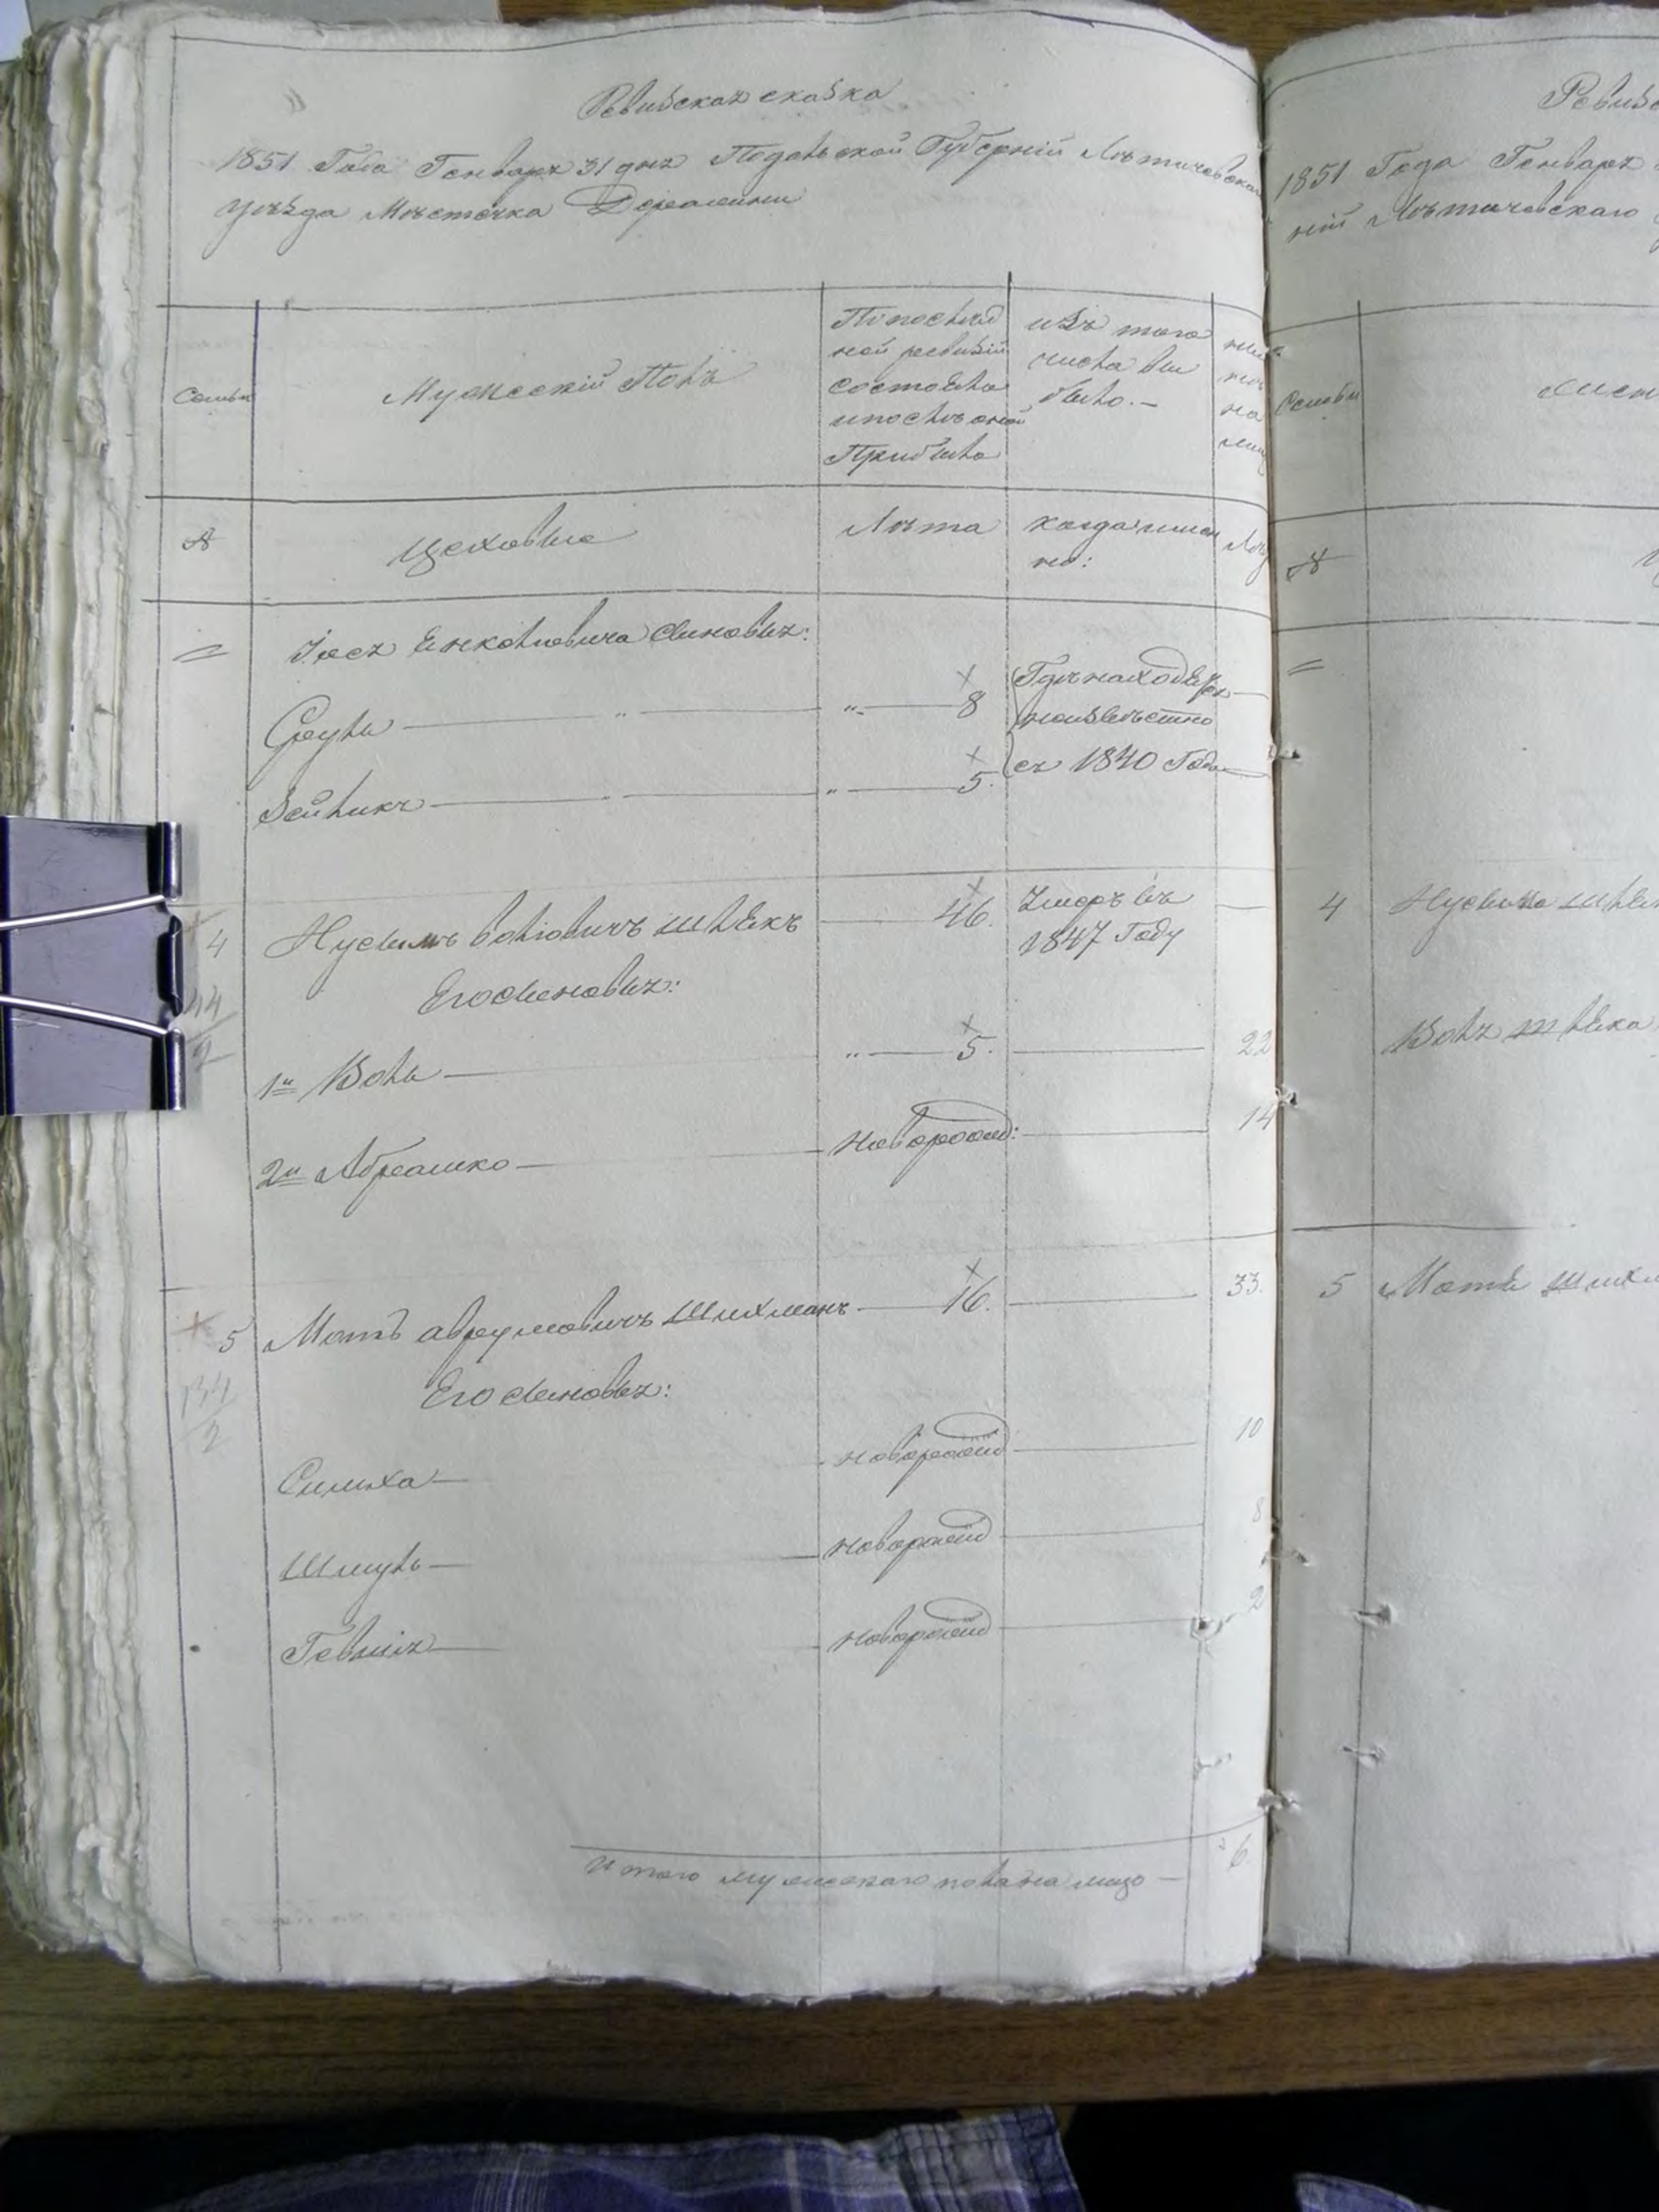 Ревизская сказка
1851 Года Генваря 31 дня Подольской Губерніи Летичевскаго
уезда Местечка Деражни
Семьи
Мужескій Полъ
По послед
ней ревизіи
состояло
и после оной
Прибыло
изъ того
числа вы
было.—
№
Цеховые
Лета
когда имен
но:
=
Іося Енкелиовича сыновья:
Сруль — " — " — 8
Где находятся
неизвестно
съ 1840 Года
Зейликъ — " — " — 5.
4 Нусимъ Волковичъ Шпекъ — 46.
Умеръ въ
1847 Году
44
2
Его сыновья:
1й Волъ — " — 5. — 22
2й Абрашко — новорожд: — 14
5 Мотъ Аврумовичъ Шихманъ — 16. — 33.
134
2
Его сыновья:
Симха — новорожд — 10
Шмуль — новорожд — 8
Гевшія — новорожд — 2
Итого мужескаго пола на лицо — 6.
Ревизс
1851 Года Генваря
ніи Летичевскаго
Семьи
№
=
4 Нусима
5